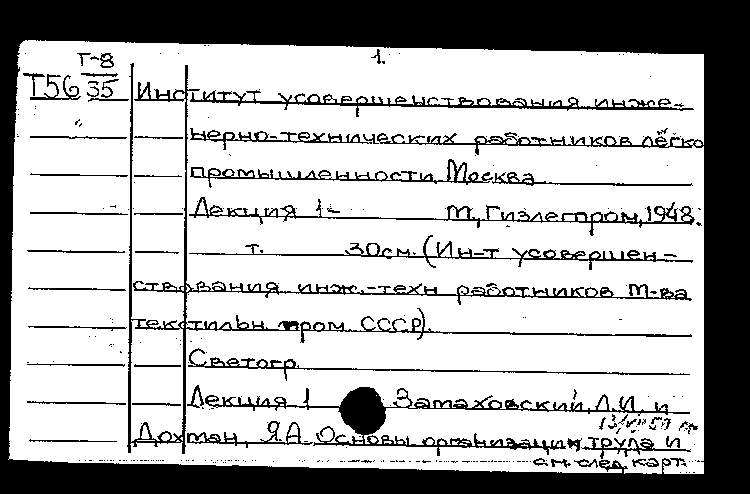 1.
Т-8
Т56 35
Институт усовершенствования инже-
нерно-технических работников лёгко
промышленности, Москва
Лекция 1- М, Гизлегпром, 1948.
т. 30см. (Ин-т усовершен-
ствования инж.-техн работников М-ва
текстильн пром СССР).
Светогр.
Лекция 1 Затаховский, Л.И. и
Дохман, Я.А. Основы организации труда и
см. след. карт.